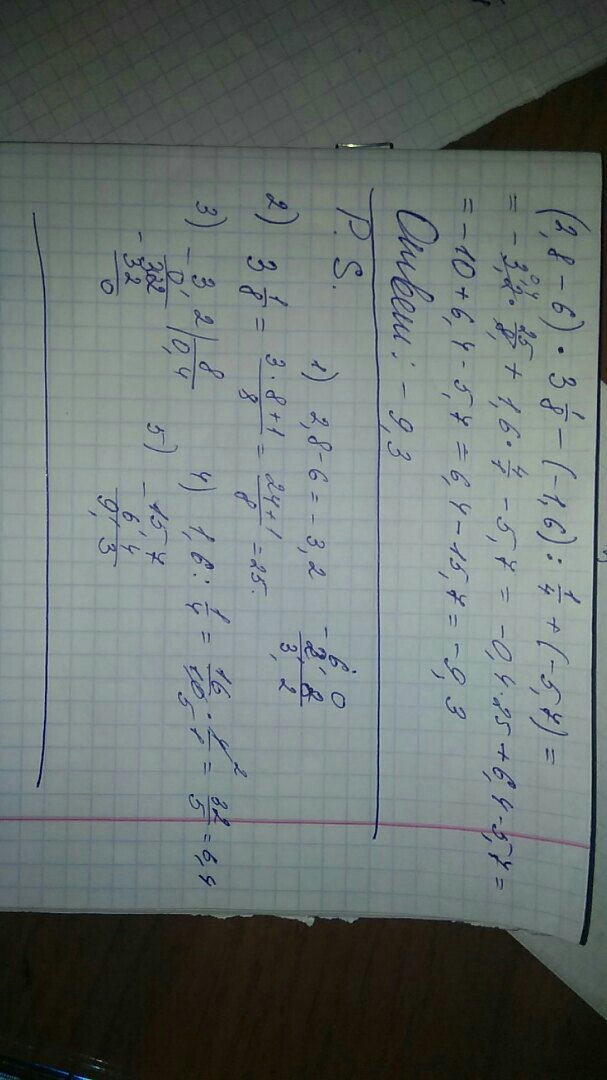 (2,8 - 6) · 3 1/8 - (-1,6) : 1/4 + (-5,7) =
= - 3,2 · 25/8 + 1,6 · 4/1 - 5,7 = -0,4·25 + 6,4 - 5,7 =
= -10 + 6,4 - 5,7 = 6,4 - 15,7 = -9,3
Ответ: -9,3
P.S.
1) 2,8 - 6 = - 3,2
- 6,0
2,8
3,2
2) 3 1/8 = 3·8+1/8 = 24+1/8 = 25.
3) - 3,2 | 8
0, | 0,4
- 32
32
0
4) 1,6 : 1/4 = 16/10 · 4/1 = 32/5 = 6,4
5) - 15,7
6,4
9,3